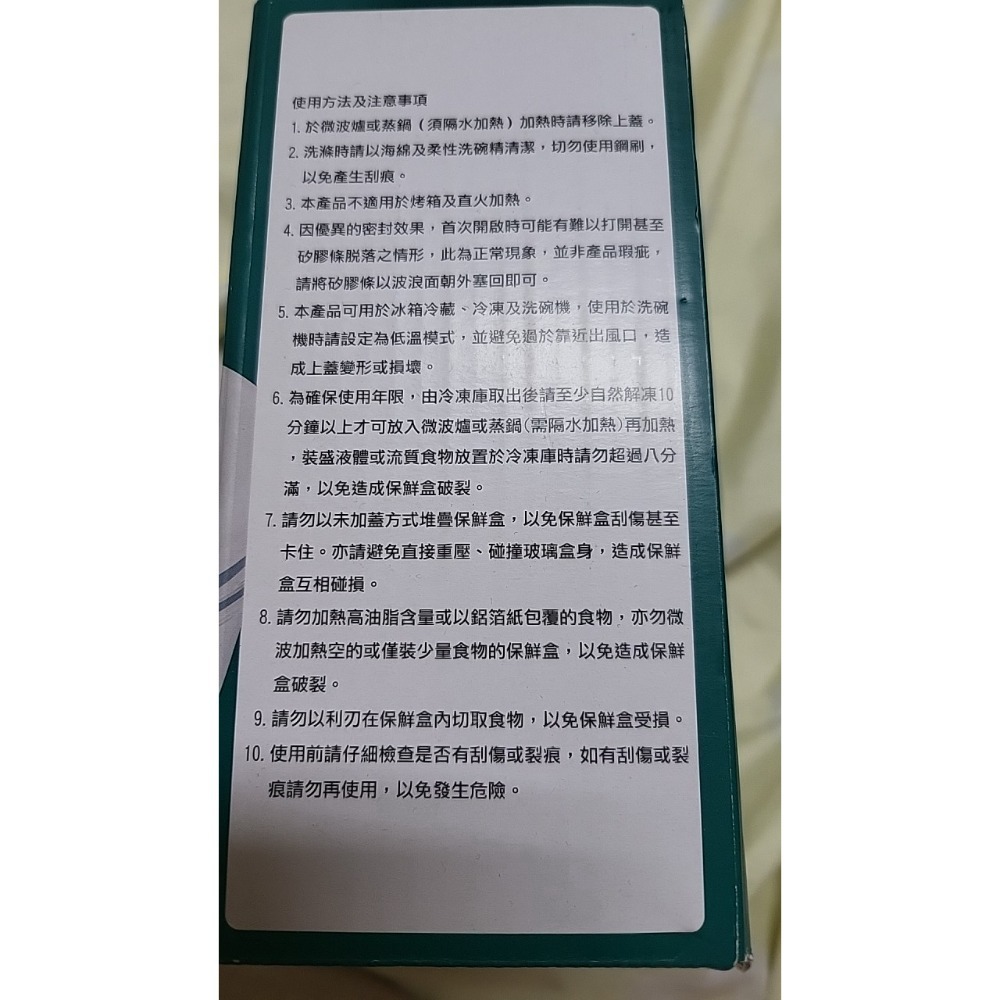 使用方法及注意事項
1. 於微波爐或蒸鍋(須隔水加熱)加熱時請移除上蓋。
2. 洗滌時請以海綿及柔性洗碗精清潔,切勿使用鋼刷,
以免產生刮痕。
3. 本產品不適用於烤箱及直火加熱。
4. 因優異的密封效果,首次開啟時可能有難以打開甚至
矽膠條脱落之情形,此為正常現象,並非產品瑕疵,
請將矽膠條以波浪面朝外塞回即可。
5. 本產品可用於冰箱冷藏、冷凍及洗碗機,使用於洗碗
機時請設定為低溫模式,並避免過於靠近出風口,造
成上蓋變形或損壞。
6. 為確保使用年限,由冷凍庫取出後請至少自然解凍10
分鐘以上才可放入微波爐或蒸鍋(需隔水加熱)再加熱
,裝盛液體或流質食物放置於冷凍庫時請勿超過八分
滿,以免造成保鮮盒破裂。
7. 請勿以未加蓋方式堆疊保鮮盒,以免保鮮盒刮傷甚至
卡住。亦請避免直接重壓、碰撞玻璃盒身,造成保鮮
盒互相碰損。
8. 請勿加熱高油脂含量或以鋁箔紙包覆的食物,亦勿微
波加熱空的或僅裝少量食物的保鮮盒,以免造成保鮮
盒破裂。
9. 請勿以利刃在保鮮盒內切取食物,以免保鮮盒受損。
10. 使用前請仔細檢查是否有刮傷或裂痕,如有刮傷或裂
痕請勿再使用,以免發生危險。